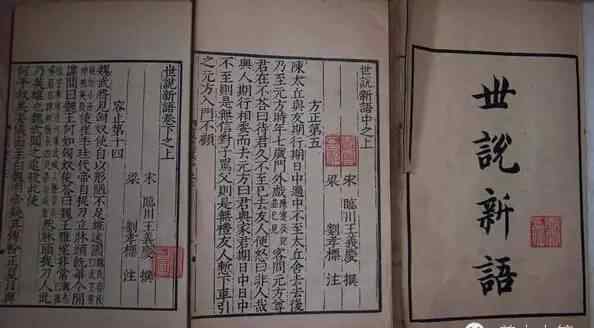 世說新語
世說新語中之上
方正第五
宋 臨川王義慶 撰
梁 劉孝標 注
陳太丘與友期行期日中過中不至太丘舍去去後
乃至元方時年七歲門外戲客問元方尊
君在不荅曰待君久不至已去友人便怒曰非人哉
與人期行相委而去元方曰君與家君期日中日中
不至則是無信對子罵父則是無禮友人慙下車引
之元方入門不顧
世說新語卷下之上
容止第十四
宋 臨川王義慶 撰
梁 劉孝標 注
魏武將見匈奴使自以形陋不足雄遠國
使崔季珪代帝自捉刀立牀頭既畢令間
諜問曰魏王何如匈奴使荅曰魏王雅望非常
然牀頭捉刀人此
乃英雄也魏武聞之追殺此使
何平叔美姿儀面至白魏明帝疑其傅粉正夏月與